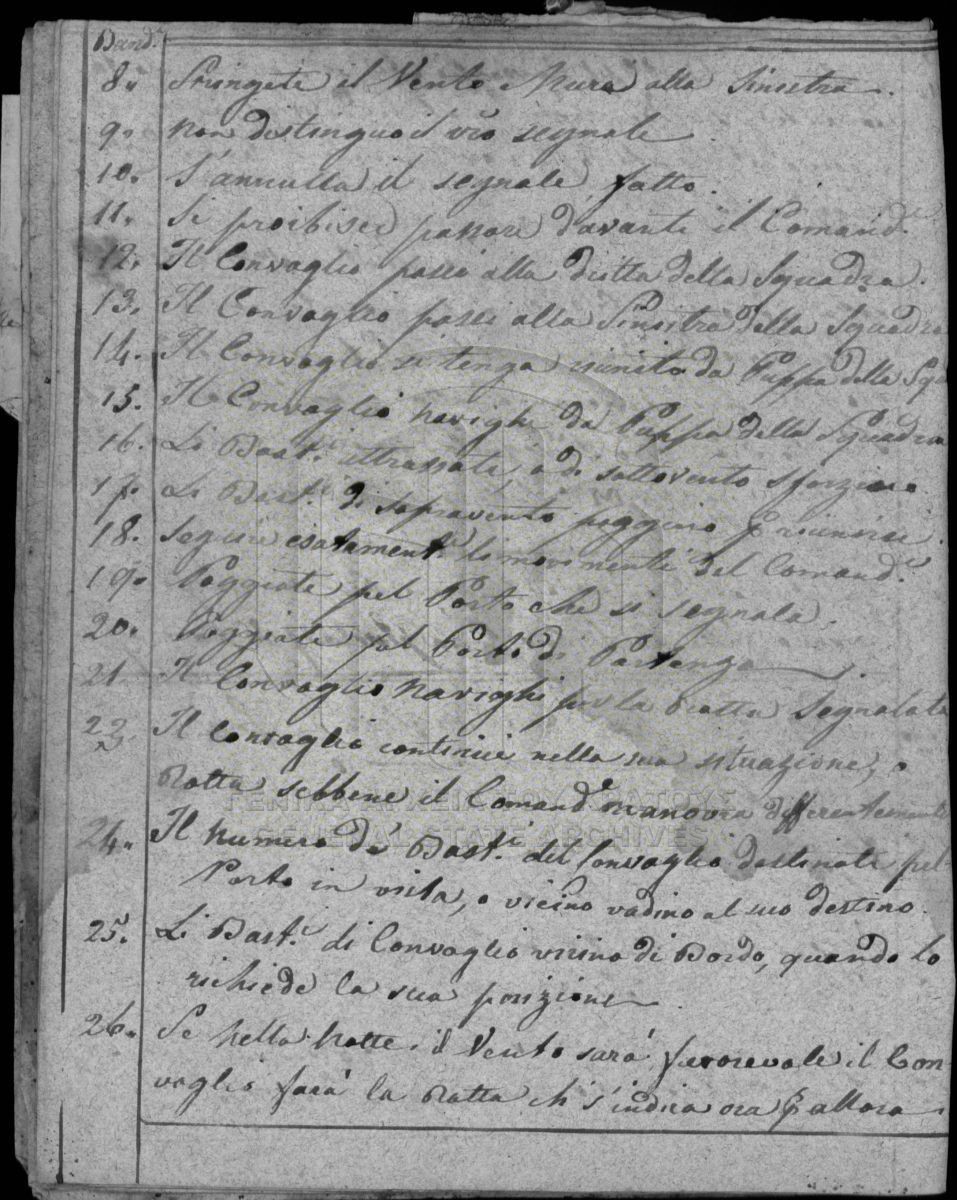 Band.ª
8. Stringete il Vento Mura alla Sinistra.
9. Non distinguo il vrō segnale.
10. S'annulla il segnale fatto.
11. Si proibisce passare d'avanti il Comand.e
12. Il Convoglio passi alla diritta della Squadra.
13. Il Convoglio passi alla Sinistra della Squadra
14. Il Convoglio si tenga riunito da Puppa della Squ
15. Il Convoglio navighi da Puppa della Squadra
16. Li Bast.i attrassati, o di sottovento sforzino.
17. Li Bast.i di sopravento poggino p riunirsi.
18. seguire esatament.e li movimenti del Comand.e
19. Poggiate pel Porto che si segnala.
20. Poggiate pel Porto di Partenza
21 Il Convoglio navighi per la Rotta segnalata
22. Il Convoglio continui nella sua situazione, o
Rotta sebbene il Comand.e manovra differentemente
24. Il numero de' Bast.i del Convoglio destinati pel
Porto in vista, o vicino vadino al suo destino.
25. Li Bast.i di Convoglio vicino di Bordo, quando lo
richiede la sua posizione
26. Se nella Notte il Vento sarà favorevole il Con
voglio farà la Rotta ch s'indica ora p allora.
GENERAL STATE ARCHIVES